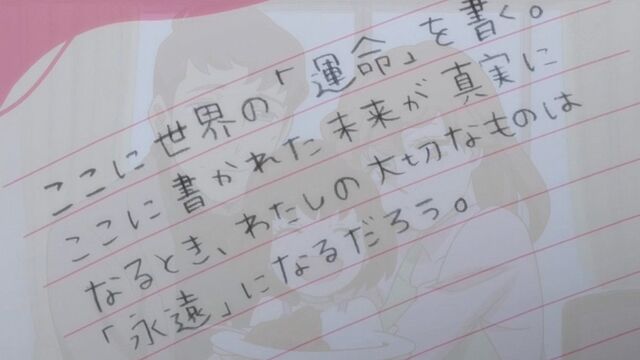 ここに世界の「運命」を書く。
ここに書かれた未来が真実に
なるとき、わたしの大切なものは
「永遠」になるだろう。